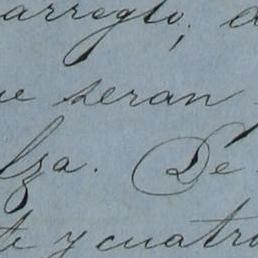 arreglo; d
ue seran
lza. De
te y cuatro